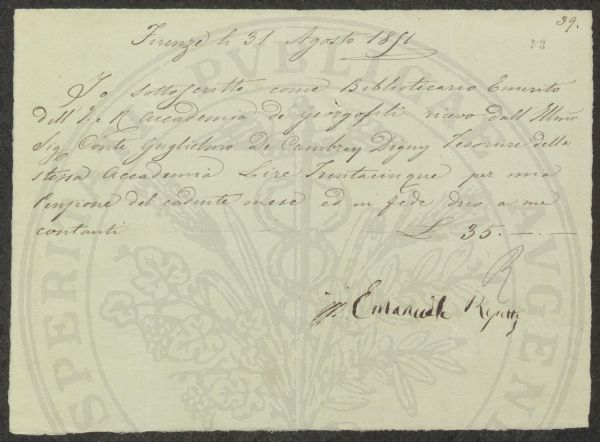 39.
Firenze li 31 Agosto 1851
Io sottoscritto come Bibliotecario Emerito
dell'I. e R. Accademia de Georgofili ricevo dall'Illmo
Sig. Conte Guglielmo De Cambray Digny Tesoriere della
stessa Accademia Lire Trentacinque per mia
Penzione del cadente mese ed in fede dico a me
contanti £ 35.
Emanuele Repetti
PUBLICAE